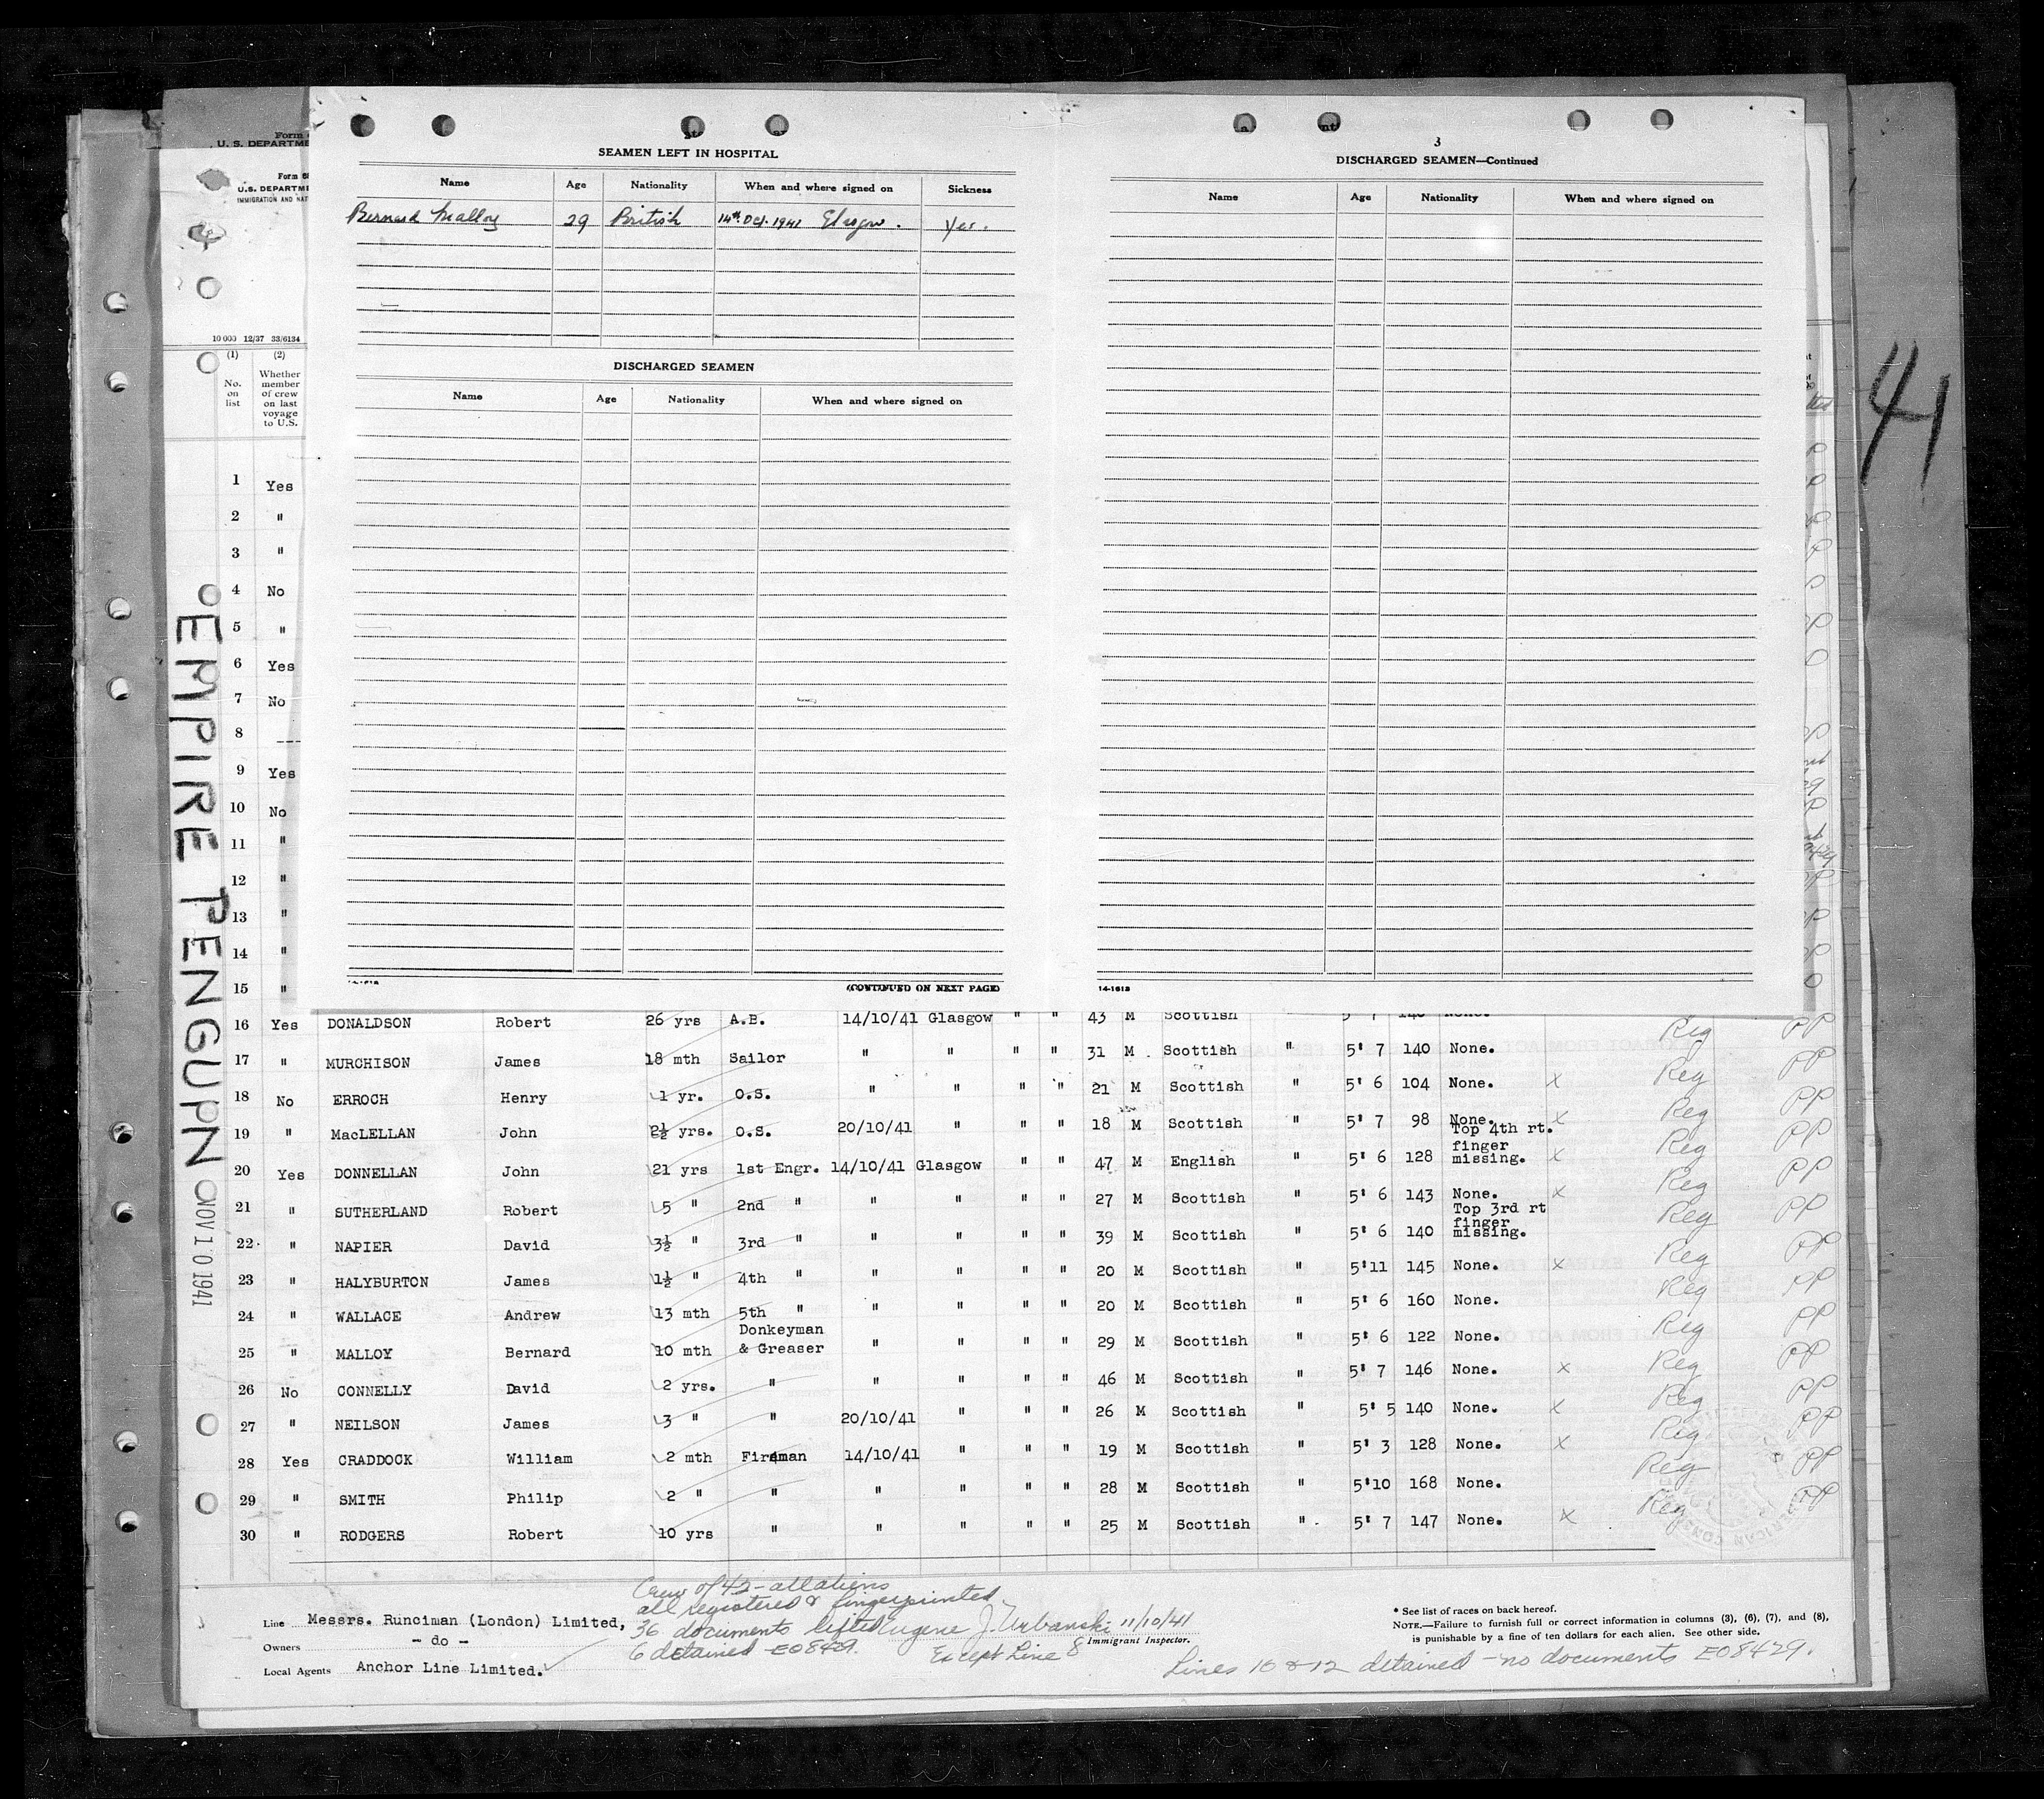 Form
U. S. DEPARTME
Form 6
U.S. DEPARTME
IMMIGRATION AND NAT
10 000 12/37 33/6134
SEAMEN LEFT IN HOSPITAL
Name Age Nationality When and where signed on Sickness
Bernard Malloy 29 British 14th Oct. 1941 Glasgow. Yes.
DISCHARGED SEAMEN
Name Age Nationality When and where signed on
(CONTINUED ON NEXT PAGE)
3
DISCHARGED SEAMEN—Continued
Name Age Nationality When and where signed on
14-1613
41
(1) (2)
No. on list
Whether member of crew on last voyage to U.S.
1 Yes
2 "
3 "
4 No
5 "
6 Yes
7 No
8 ---
9 Yes
10 No
11 "
12 "
13 "
14 "
15 "
16 Yes DONALDSON Robert 26 yrs A.B. 14/10/41 Glasgow " " 43 M Scottish 5' 7 140 None. Reg PP
17 " MURCHISON James 18 mth Sailor " " " " 31 M . Scottish " 5' 7 140 None. Reg PP
18 No ERROCH Henry 1 yr. O.S. " " " " 21 M Scottish " 5' 6 104 None. x Reg PP
19 " MacLELLAN John 2½ yrs. O.S. 20/10/41 " " " 18 M Scottish " 5' 7 98 None. x Reg PP
20 Yes DONNELLAN John 21 yrs 1st Engr. 14/10/41 Glasgow " " 47 M English " 5' 6 128 Top 4th rt. finger missing. x Reg PP
21 " SUTHERLAND Robert 5 " 2nd " " " " " 27 M Scottish " 5' 6 143 None. x Reg PP
22 " NAPIER David 3½ " 3rd " " " " " 39 M Scottish " 5' 6 140 Top 3rd rt finger missing. Reg PP
23 " HALYBURTON James 1½ " 4th " " " " " 20 M Scottish " 5'11 145 None. x Reg PP
24 " WALLACE Andrew 13 mth 5th " " " " " 20 M Scottish " 5' 6 160 None. Reg PP
25 " MALLOY Bernard 10 mth Donkeyman & Greaser " " " " 29 M Scottish " 5' 6 122 None. Reg PP
26 No CONNELLY David 2 yrs. " " " " " 46 M Scottish " 5' 7 146 None. x Reg PP
27 " NEILSON James 3 " " 20/10/41 " " " 26 M Scottish " 5' 5 140 None. x Reg PP
28 Yes CRADDOCK William 2 mth Fireman 14/10/41 " " " 19 M Scottish " 5' 3 128 None. x Reg PP
29 " SMITH Philip 2 " " " " " " 28 M Scottish " 5'10 168 None. Reg PP
30 " RODGERS Robert 10 yrs " " " " " 25 M Scottish " . 5' 7 147 None. x Reg PP
EMPIRE PENGUPN NOV 10 1941
Crew of 42 - all aliens
all registered & fingerprinted
36 documents lifted Eugene J. Urbanski 11/10/41
Immigrant Inspector.
6 detained - E08429. Except Line 8
Line Messrs. Runciman (London) Limited,
Owners - do -
Local Agents Anchor Line Limited.
* See list of races on back hereof.
NOTE.—Failure to furnish full or correct information in columns (3), (6), (7), and (8),
is punishable by a fine of ten dollars for each alien. See other side.
Lines 10 & 12 detained - no documents E08429.